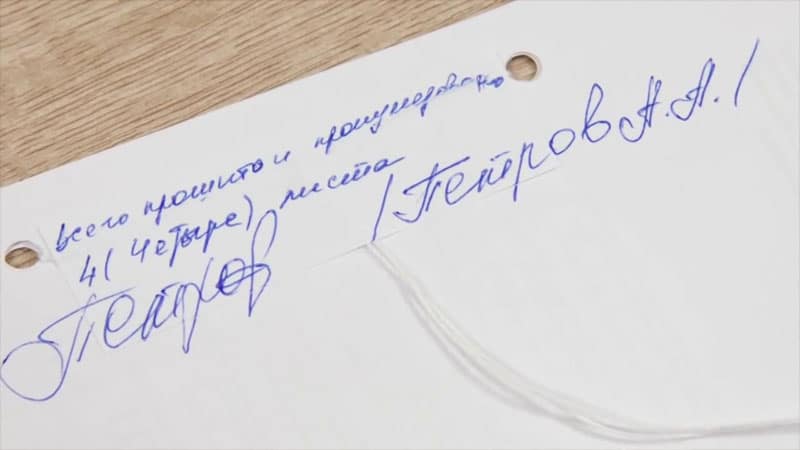 Всего прошито и пронумеровано
4 (четыре) листа
Петров /Петров А.А./